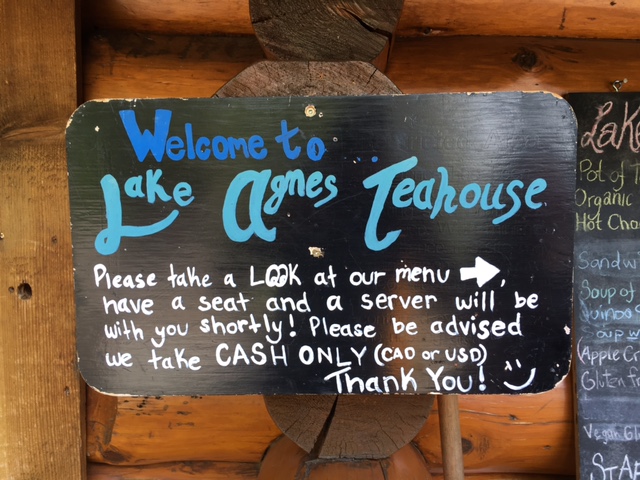 Welcome to
Lake Agnes Teahouse
Please take a LOOK at our menu ➡,
have a seat and a server will be
with you shortly! Please be advised
we take CASH ONLY (CAD or USD)
Thank You! :)
Lake
Pot of
Organic
Hot
Soup of
(Apple
Gluten
Vegan